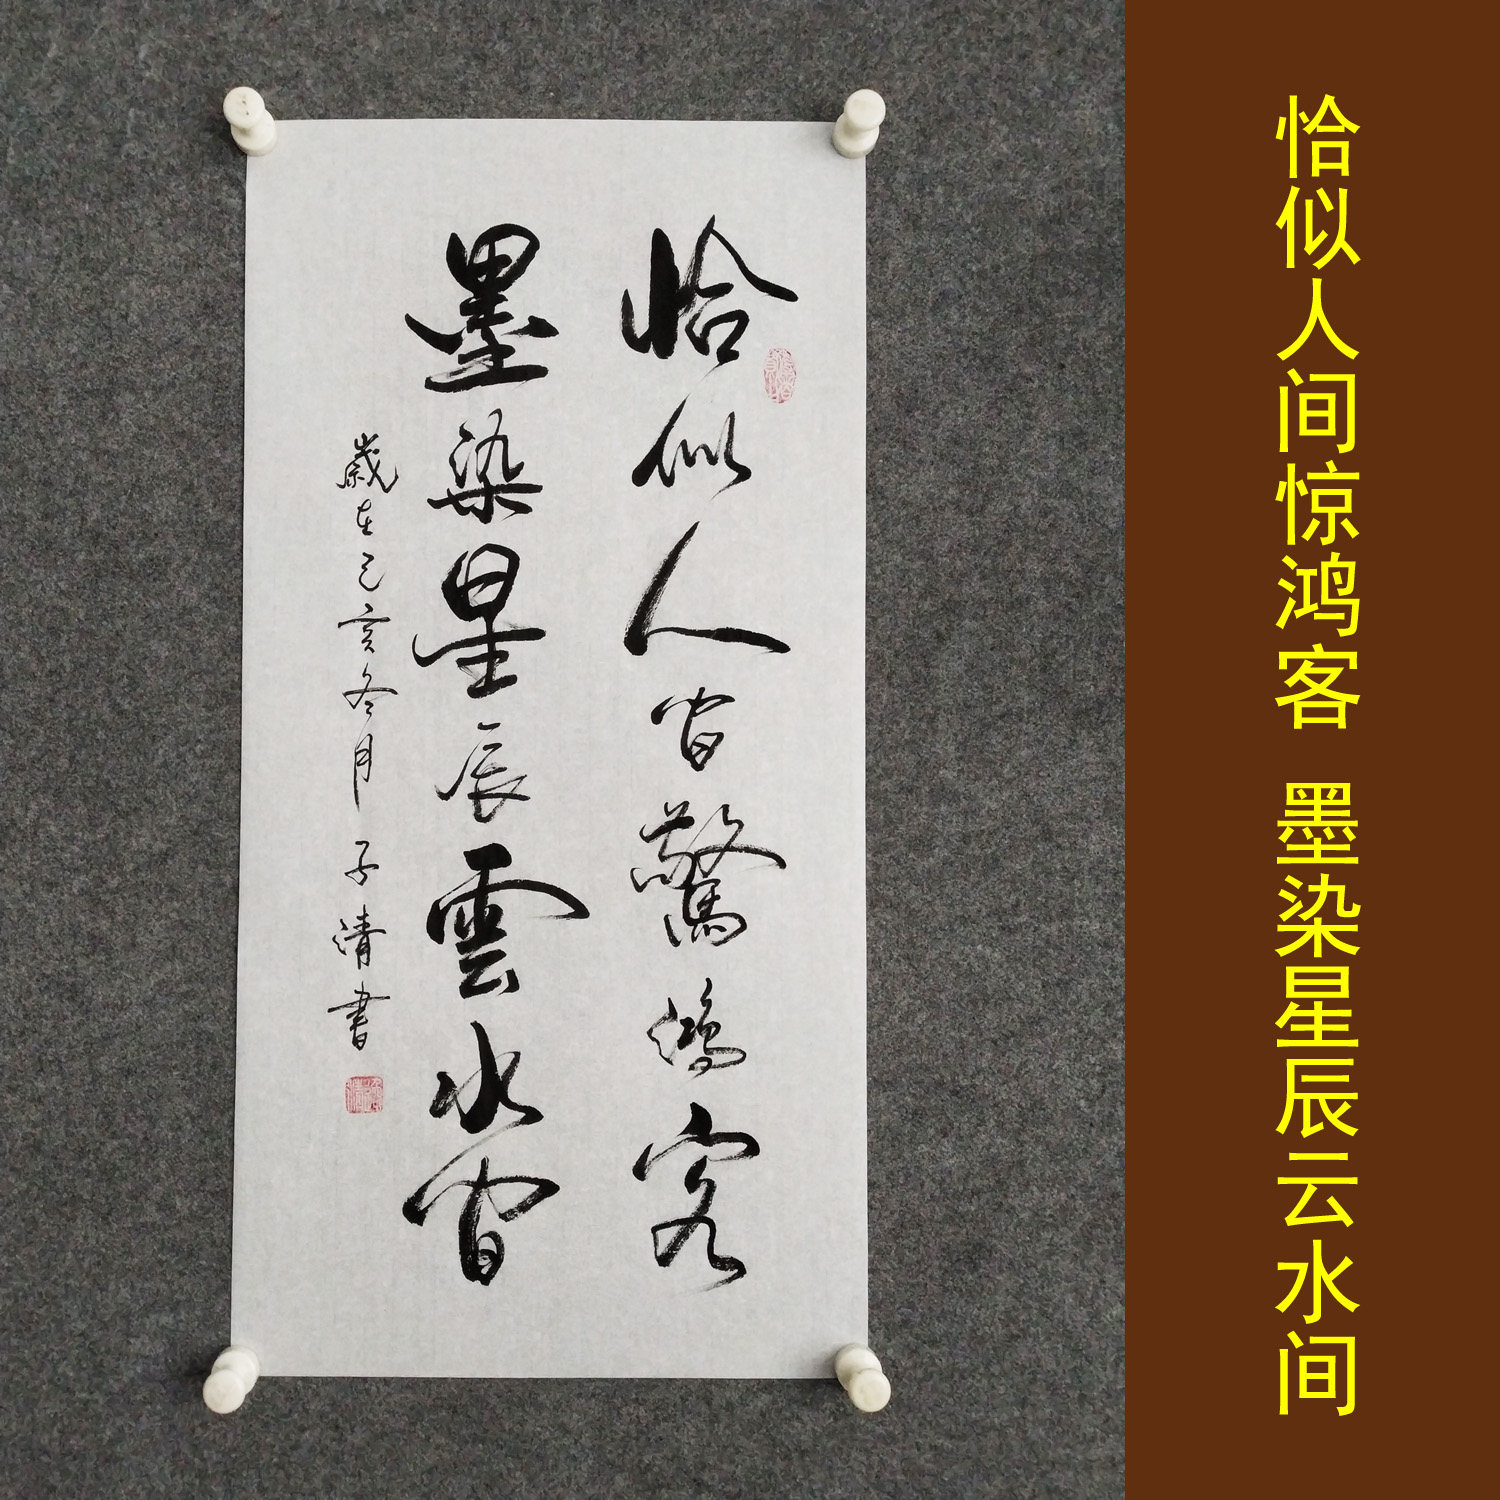 恰似人间驚鸿客
墨染星辰雲水间
歲在己亥冬月子清書
恰似人间惊鸿客 墨染星辰云水间